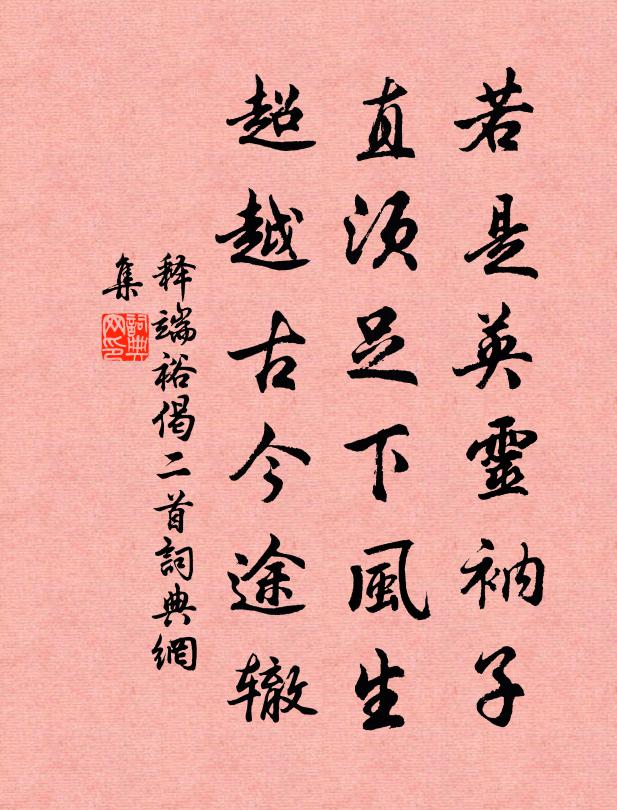 若是英靈衲子
直须足下風生
超越古今途辙
释端裕偈二首詞典網
集
詞典網印